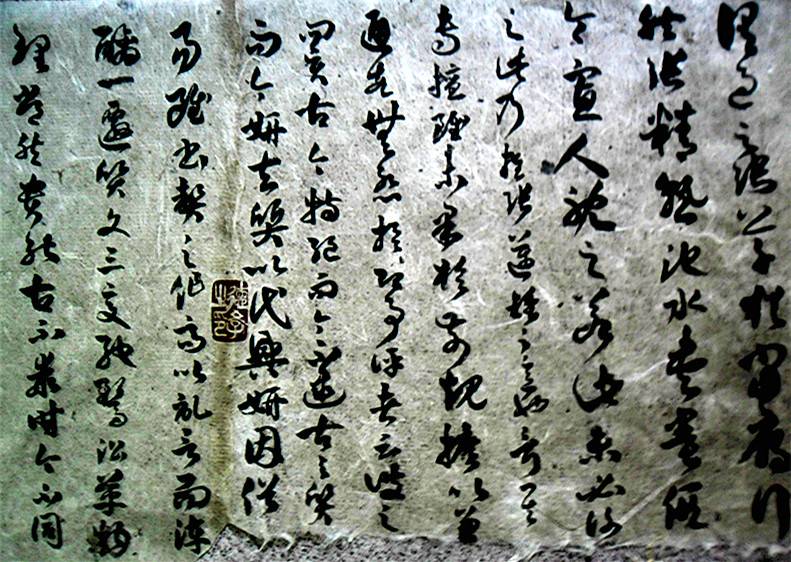 謂過之張草猶當鴈行
然張精熟池水盡墨假
令寡人耽之若此未必謝
之此乃推張邁鍾之意也考其
專擅雖未果於前規摭以兼
通故無慙於即事評者云彼之
四賢古今特絕而今不逮古古質
而今妍夫質以代興妍因俗
易雖書契之作適以記言而淳
醨一遷質文三變馳騖沿革物
理常然貴能古不乖時今不同